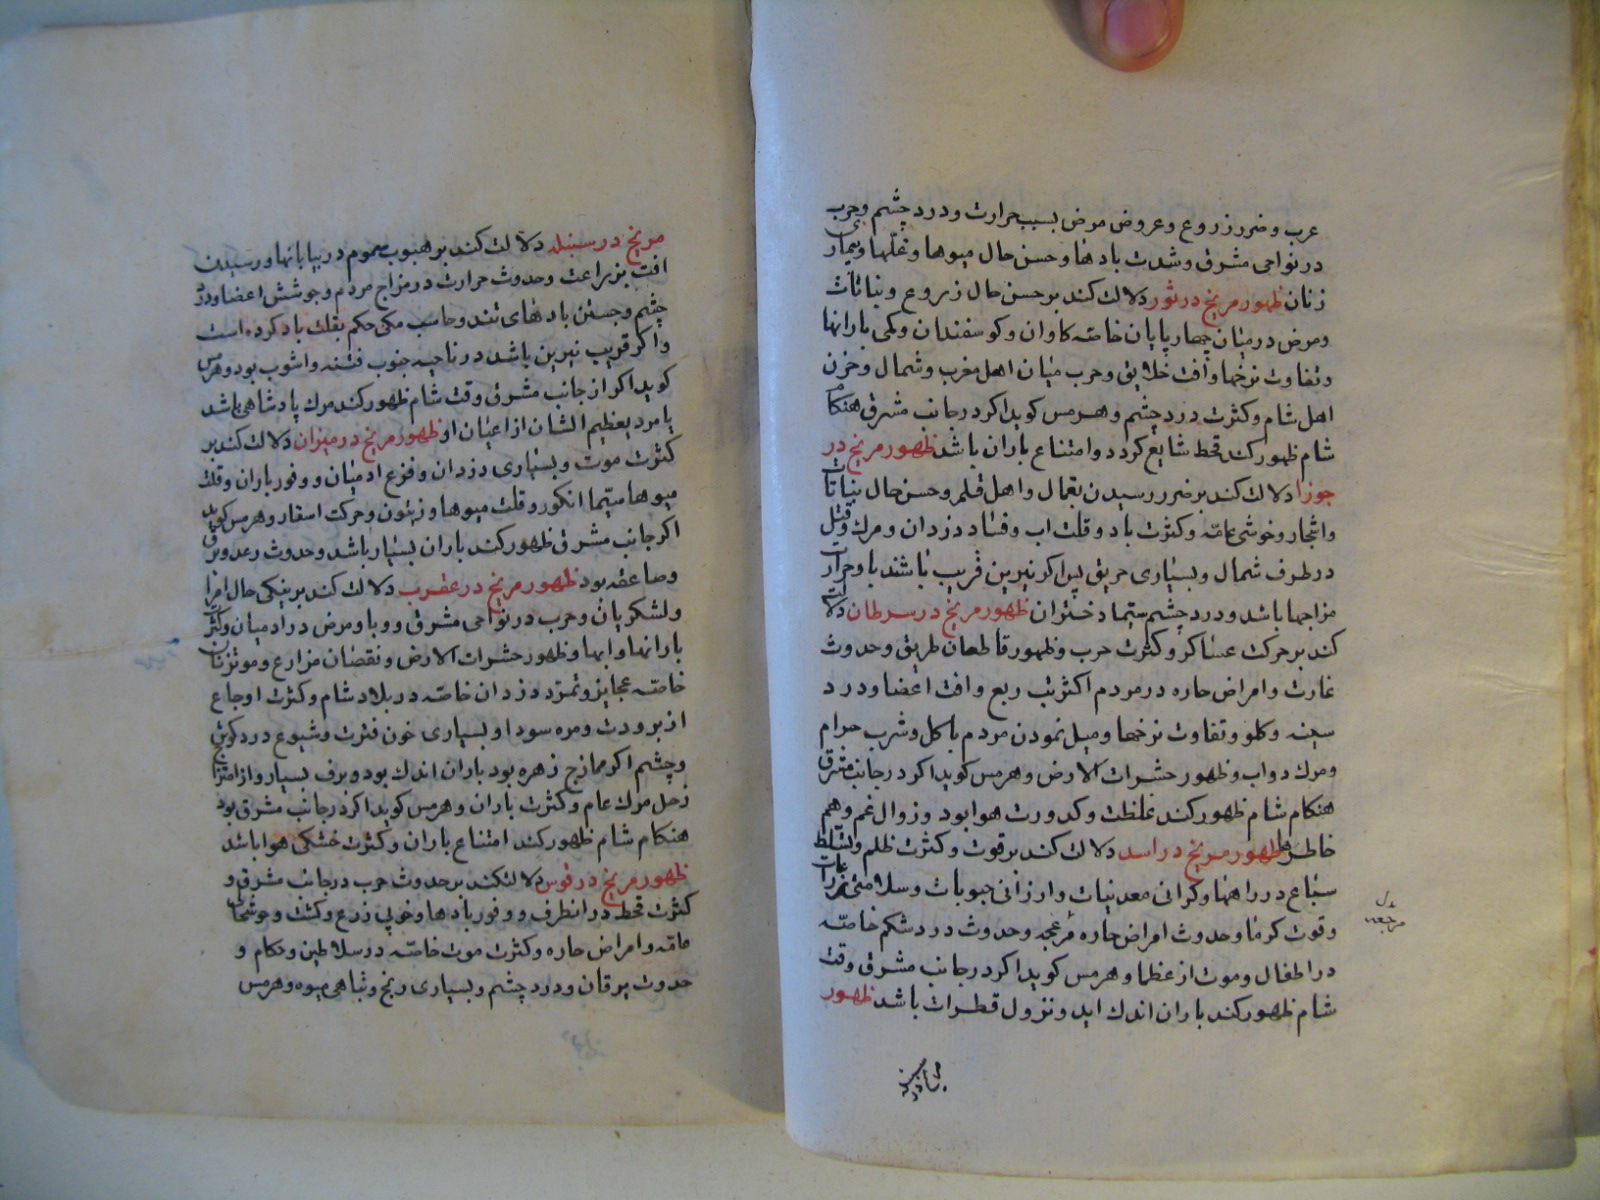 عرب و ضرر زروع و عروض مرض بسبب حرارت و درد چشم و حرب
در نواحی مشرق و شدت بادها و حسن حال میوها و غلّها و بیماری
زنان ظهور مریخ در ثور دلالت کند بر حسن حال زروع و نباتات
و مرض در میان چهارپایان خاصّه کاوان و کوسفندان و کمی بارانها
و تفاوت نرخها و آفت خلایق و حرب میان اهل مغرب و شمال و حزن
اهل شام و کثرت درد چشم و هرمس کوید اکر در جانب مشرق هنکام
شام ظهور کند قحط شایع کردد و امتناع باران باشد ظهور مریخ در
جوزا دلالت کند بر ضرر رسیدن بعمال و اهل قلم و حسن حال نباتات
و اشجار و خوشی عامّه و کثرت باد و قلت اب و فساد دزدان و مرك و قتل
در طرف شمال و بسیاری حریق پس اکر نیرین قریب باشند با و حرارت
مزاجها باشد و درد چشم سیّما دختران ظهور مریخ در سرطان دلالت
کند بر حرکت عساکر و کثرت حرب و ظهور قاطعان طریق و حدوث
غارت و امراض حاره در مردم اکثر تب ربع و افت اعضا و درد
سینه و کلو و تفاوت نرخها و میل نمودن مردم باکل و شرب حرام
و مرك دواب و ظهور حشرات الارض و هرمس کوید اکر در جانب مشرق
هنکام شام ظهور کند غلظت و کدورت هوا بود و زوال غم و هم
خاطرها ظهور مریخ در اسد دلالت کند بر قوت و کثرت ظلم و تسلّط
سباع در راهها و کرانی معدنیات و ارزانی حبوبات و سلامتی
و قوت کرما و حدوث امراض حاره و حدوث درد شکم خاصّه
در اطفال و موت از عظما و هرمس کوید اکر در جانب مشرق وقت
شام ظهور کند باران اندك اید و نزول قطرات باشد ظهور
مریخ در سنبله
مریخ در سنبله دلالت کند بر هبوب سموم در بیابانها و رسیدن
افت بزراعت و حدوث حرارت در مزاج مردم و جوشش اعضا و درد
چشم و جستن بادهای تند و حاسب مکی حکم بقلت باد کرده است
و اکر قریب نیرین باشد در ناحیه جنوب فتنه و اشوب بود و هرمس
کوید اکر از جانب مشرق وقت شام ظهور کند مرك پادشاهی باشد
یا مردی عظیم الشان از اعیان او ظهور مریخ در میزان دلالت کند بر
کثرت موت و بسیاری دزدان و فزع ادمیان و وفور باران و قلت
میوها سیّما انکور و قلت میوها و زیتون و حرکت اسفار و هرمس کوید
اکر جانب مشرق ظهور کند باران بسیار باشد و حدوث رعد و برق
و صاعقه بود ظهور مریخ در عقرب دلالت کند بر نیکی حال امرا
و لشکریان و حرب در نواحی مشرق و وبا و مرض در ادمیان و کثرت
بارانها و ابها و ظهور حشرات الارض و نقصان مزارع و موت زنان
خاصّه عجایز و تمرّد دزدان خاصّه در بلاد شام و کثرت اوجاع
از برودت و مره سودا و بسیاری خون فترت و شیوع درد کوش
و چشم اکر ممازج زهره بود باران اندك بود و برف بسیار و از امتزاج
زحل مرك عام و کثرت باران و هرمس کوید اکر در جانب مشرق بود
هنکام شام ظهور کند امتناع باران و کثرت خشکی هوا باشد
ظهور مریخ در قوس دلالت کند بر حدوث حرب در جانب مشرق و
کثرت قحط در انطرف و وفور بادها و خوبی زرع و کشت و خوشحالی
عامّه و امراض حاره و کثرت موت خاصّه در سلاطین و حکام و
حدوث یرقان و درد چشم و بسیاری رنج و تباهی میوه و هرمس